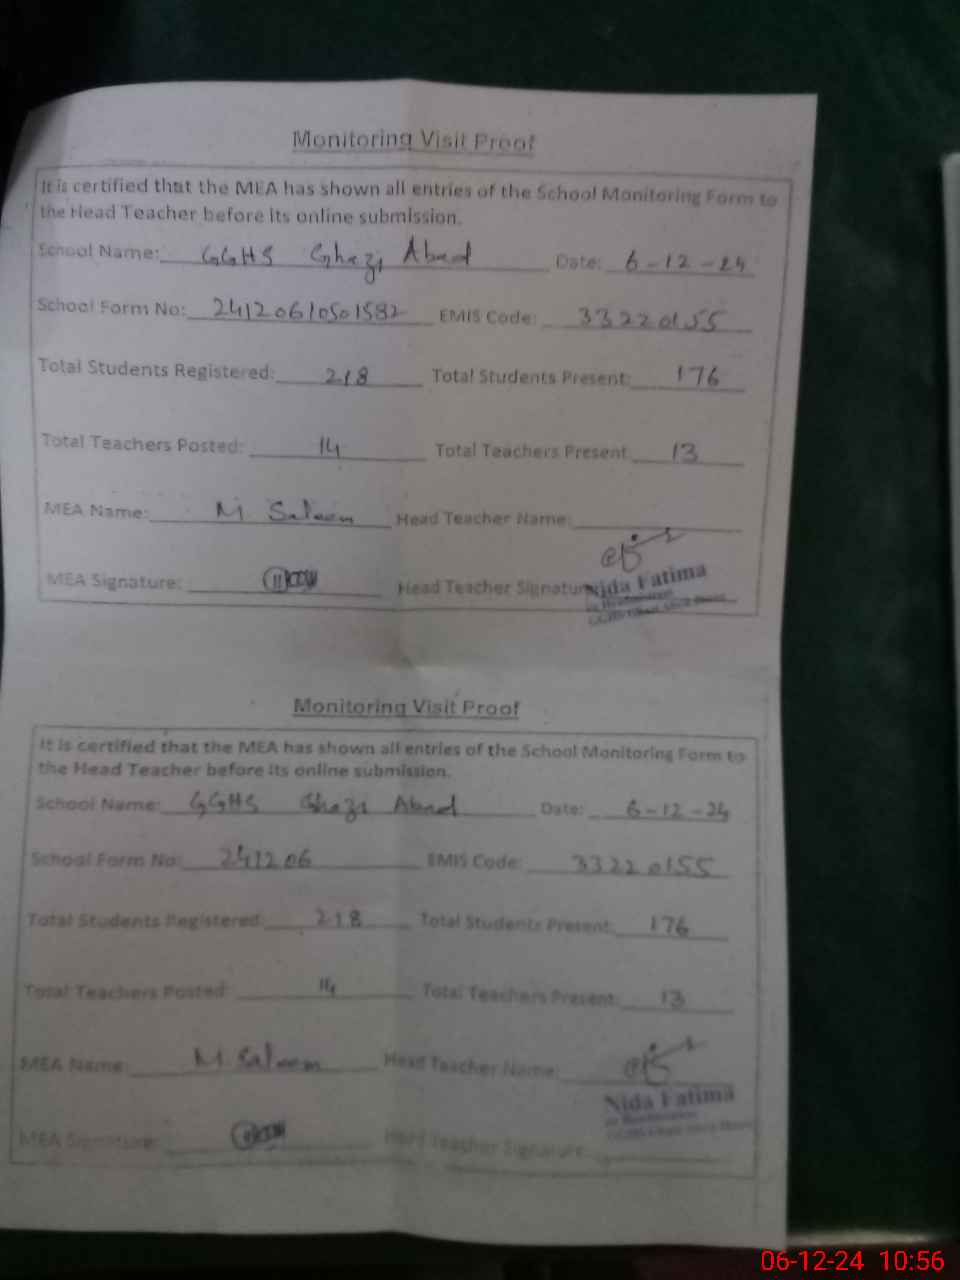 Monitoring Visit Proof
It is certified that the MEA has shown all entries of the School Monitoring Form to
the Head Teacher before its online submission.
School Name: GGHS Ghazi Abad Date: 6-12-24
School Form No: 24120610501582 EMIS Code: 33220155
Total Students Registered: 218 Total Students Present: 176
Total Teachers Posted: 14 Total Teachers Present 13
MEA Name: M Saleem Head Teacher Name:
MEA Signature: Head Teacher Signature
Nida Fatima
Monitoring Visit Proof
It is certified that the MEA has shown all entries of the School Monitoring Form to
the Head Teacher before its online submission.
School Name: GGHS Ghazi Abad Date: 6-12-24
School Form No: 241206 EMIS Code: 33220155
Total Students Registered: 218 Total Students Present: 176
Total Teachers Posted: 14 Total Teachers Present: 13
MEA Name: M Saleem Head Teacher Name:
Nida Fatima
MEA Signature: Head Teacher Signature:
06-12-24 10:56